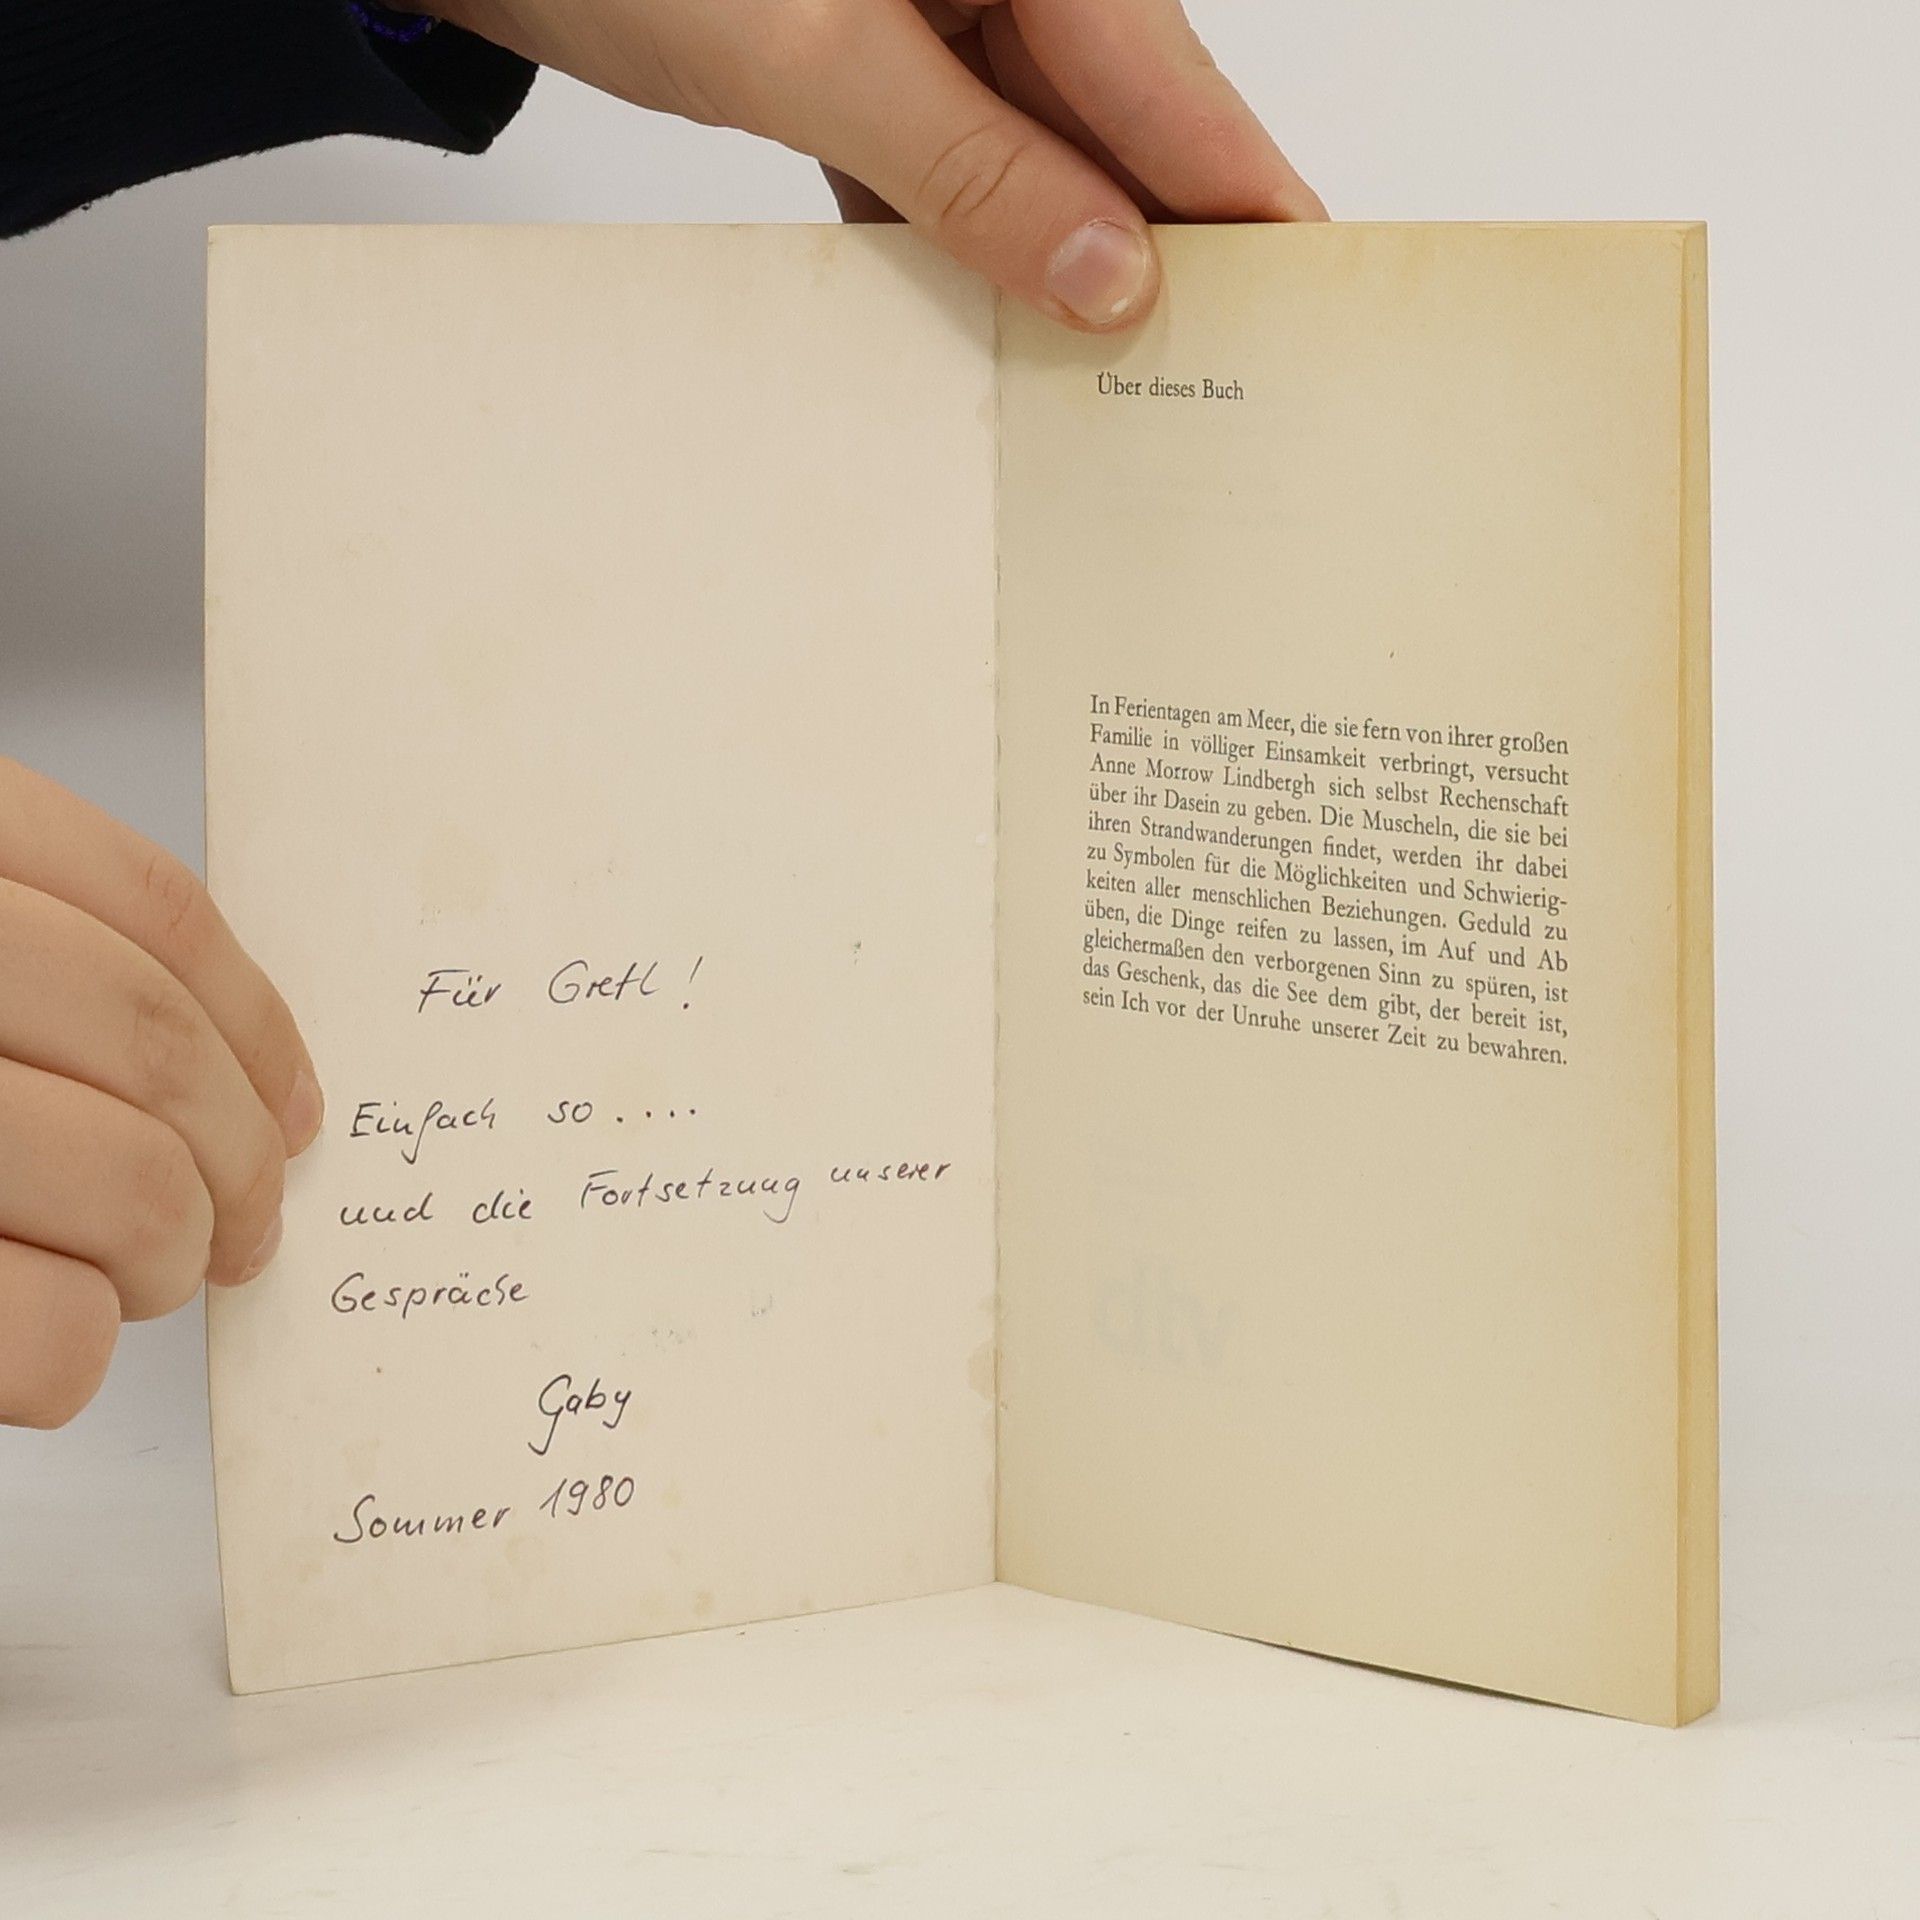 Für Gretl !
Einfach so....
und die Fortsetzung unserer
Gespräche
Gaby
Sommer 1980
Über dieses Buch
In Ferientagen am Meer, die sie fern von ihrer großen
Familie in völliger Einsamkeit verbringt, versucht
Anne Morrow Lindbergh sich selbst Rechenschaft
über ihr Dasein zu geben. Die Muscheln, die sie bei
ihren Strandwanderungen findet, werden ihr dabei
zu Symbolen für die Möglichkeiten und Schwierig-
keiten aller menschlichen Beziehungen. Geduld zu
üben, die Dinge reifen zu lassen, im Auf und Ab
gleichermaßen den verborgenen Sinn zu spüren, ist
das Geschenk, das die See dem gibt, der bereit ist,
sein Ich vor der Unruhe unserer Zeit zu bewahren.